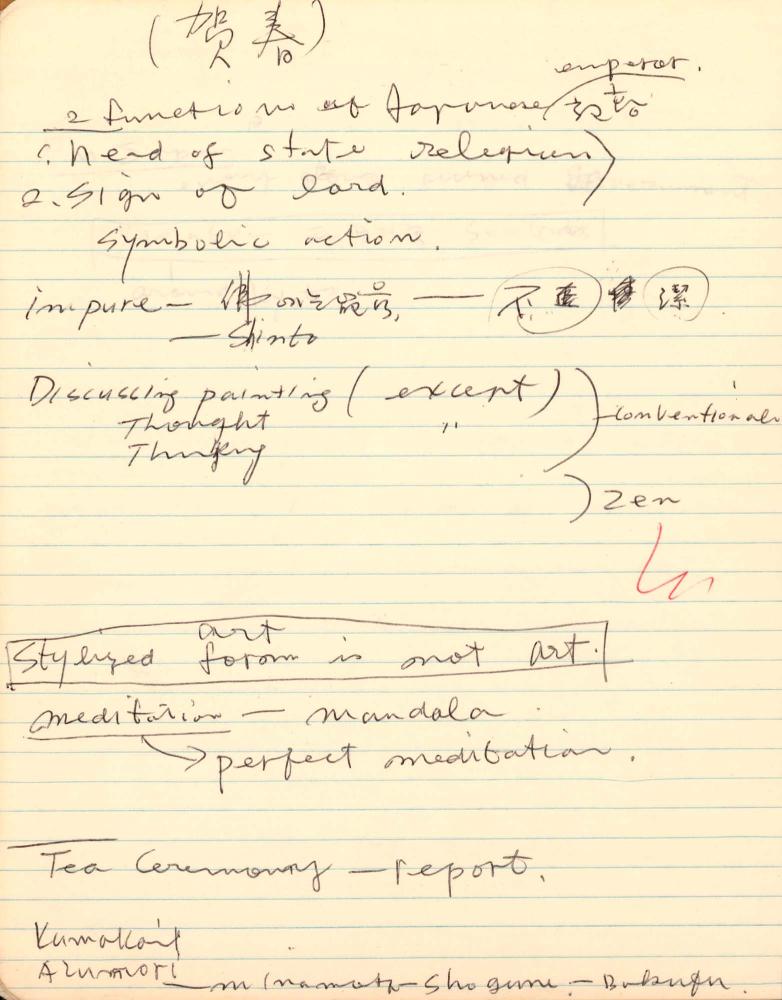 (賀春)
emperor.
2 functions of Japanese
1. Head of state relegion
2. Sign of lord.
symbolic action.
impure — 佛 — 不 潔
— Shinto
Discussing painting ( except )
Thought 〃
Thinking
conventional
Zen
art
Stylized form is not art.
meditation — mandala
perfect meditation.
Tea Ceremony — report.
Kumakai
Azumori
— Minamoto — Shogune — Bakufu.